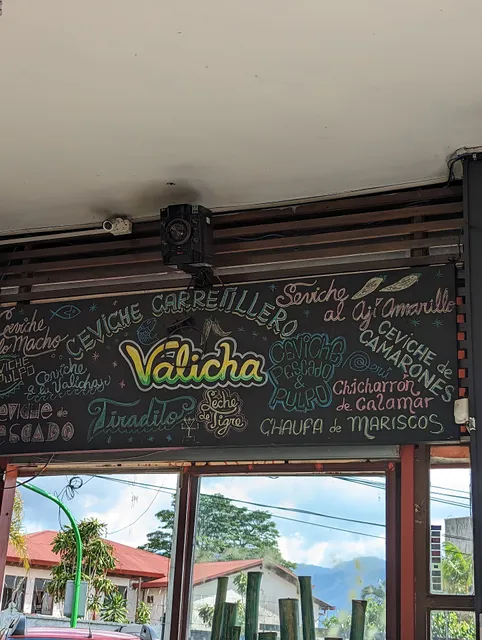 CEVICHE CARRETILLERO
Seviche
al Ají Amarillo
Ceviche
lo Macho
CEVICHE de
CAMARONES
Valicha
CEVICHE
PESCADO
&
PULPO
PULPO
Ceviche
a la Valichay
Chicharrón
de Calamar
Tiradito
Leche
de
Tigre
de
PESCADO
CHAUFA de MARISCOS